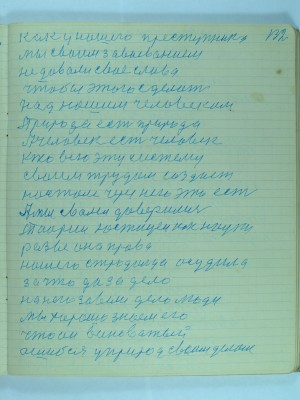 как у нашего преступника 132
мы своим заявлением
не давали свое слова
чтобы этого сделат
над нашим человеком
Природа ест природа
А человек ест человек
кто всю эту систему
своим трудом создает
на стали через него это ест
А мы с вами доверились
юстиции как науки
разве она права
нашего страдальца осудила
за что да за дело
на него завели дело люди
мы хорошо знаем его
что он виноватый
ошибся у природ своим делом